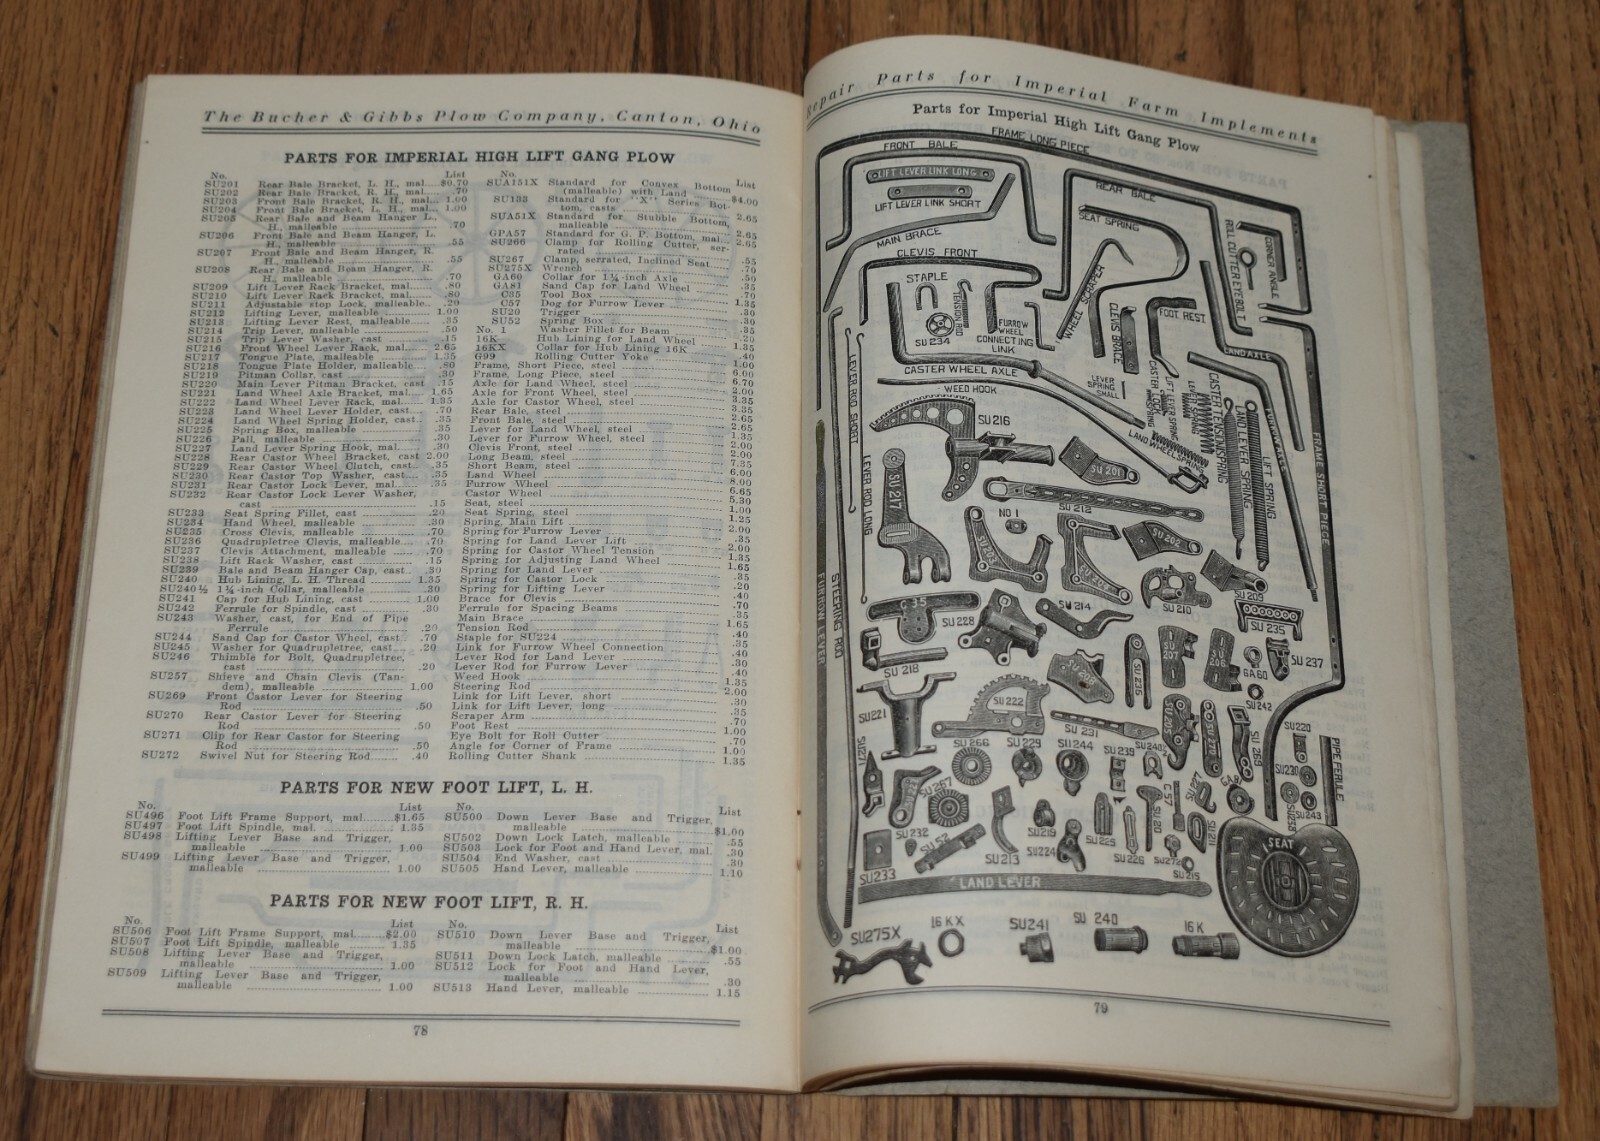 The Bucher & Gibbs Plow Company, Canton, Ohio
PARTS FOR IMPERIAL HIGH LIFT GANG PLOW
No. List
SU201 Rear Bale Bracket, L. H., mal. $0.70
SU202 Rear Bale Bracket, R. H., mal. .70
SU203 Front Bale Bracket, R. H., mal. 1.00
SU204 Front Bale Bracket, L. H., mal. 1.00
SU205 Rear Bale and Beam Hanger L.
H., malleable .70
SU206 Front Bale and Beam Hanger, L.
H., malleable .55
SU207 Front Bale and Beam Hanger, R.
H., malleable .55
SU208 Rear Bale and Beam Hanger, R.
H., malleable .70
SU209 Lift Lever Rack Bracket, mal. .80
SU210 Lift Lever Rack Bracket, mal. .80
SU211 Adjustable stop Lock, malleable .20
SU212 Lifting Lever, malleable 1.00
SU213 Lifting Lever Rest, malleable .35
SU214 Trip Lever, malleable .50
SU215 Trip Lever Washer, cast .15
SU216 Front Wheel Lever Rack, mal. 2.65
SU217 Tongue Plate, malleable 1.35
SU218 Tongue Plate Holder, malleable .80
SU219 Pitman Collar, cast .30
SU220 Main Lever Pitman Bracket, cast .15
SU221 Land Wheel Axle Bracket, mal. 1.65
SU222 Land Wheel Lever Rack, mal. 1.35
SU223 Land Wheel Lever Holder, cast .70
SU224 Land Wheel Spring Holder, cast .35
SU225 Spring Box, malleable .35
SU226 Pall, malleable .30
SU227 Land Lever Spring Hook, mal. .30
SU228 Rear Castor Wheel Bracket, cast 2.00
SU229 Rear Castor Wheel Clutch, cast .35
SU230 Rear Castor Top Washer, cast .35
SU231 Rear Castor Lock Lever, mal. .35
SU232 Rear Castor Lock Lever Washer,
cast .15
SU233 Seat Spring Fillet, cast .20
SU234 Hand Wheel, malleable .30
SU235 Cross Clevis, malleable .70
SU236 Quadrupletree Clevis, malleable .70
SU237 Clevis Attachment, malleable .70
SU238 Lift Rack Washer, cast .15
SU239 Bale and Beam Hanger Cap, cast .30
SU240 Hub Lining, L. H. Thread 1.35
SU240½ 1¼-inch Collar, malleable .30
SU241 Cap for Hub Lining, cast 1.00
SU242 Ferrule for Spindle, cast .30
SU243 Washer, cast, for End of Pipe
Ferrule .20
SU244 Sand Cap for Castor Wheel, cast .70
SU245 Washer for Quadrupletree, cast .20
SU246 Thimble for Bolt, Quadrupletree,
cast .20
SU257 Shieve and Chain Clevis (Tan-
dem), malleable 1.00
SU269 Front Castor Lever for Steering
Rod .50
SU270 Rear Castor Lever for Steering
Rod .50
SU271 Clip for Rear Castor for Steering
Rod .50
SU272 Swivel Nut for Steering Rod .40
No. List
SUA151X Standard for Convex Bottom
(malleable) with Land $4.00
SU133 Standard for "X" Series Bot-
tom, casts 2.65
SUA51X Standard for Stubble Bottom,
malleable 2.65
GPA57 Standard for G. P. Bottom, mal. 2.65
SU266 Clamp for Rolling Cutter, ser-
rated .55
SU267 Clamp, serrated, Inclined Seat .70
SU275X Wrench .50
GA60 Collar for 1¼-inch Axle .35
GA81 Sand Cap for Land Wheel .70
C35 Tool Box 1.35
C57 Dog for Furrow Lever .30
SU20 Trigger .30
SU52 Spring Box .35
No. 1 Washer Fillet for Beam .20
16K Hub Lining for Land Wheel 1.35
16KX Collar for Hub Lining 16K .40
G99 Rolling Cutter Yoke 1.00
Frame, Short Piece, steel 6.00
Frame, Long Piece, steel 6.70
Axle for Land Wheel, steel 2.00
Axle for Front Wheel, steel 3.35
Axle for Castor Wheel, steel 3.35
Rear Bale, steel 2.65
Front Bale, steel 2.65
Lever for Land Wheel, steel 1.35
Lever for Furrow Wheel, steel 2.00
Clevis Front, steel 2.00
Long Beam, steel 7.35
Short Beam, steel 6.00
Land Wheel 8.00
Furrow Wheel 6.65
Castor Wheel 5.30
Seat, steel 1.00
Seat Spring, steel 1.25
Spring, Main Lift 2.00
Spring for Furrow Lever .35
Spring for Land Lever Lift 2.00
Spring for Castor Wheel Tension 1.35
Spring for Adjusting Land Wheel 1.65
Spring for Land Lever .35
Spring for Castor Lock .20
Spring for Lifting Lever .40
Brace for Clevis .70
Ferrule for Spacing Beams .35
Main Brace 1.65
Tension Rod .40
Staple for SU224 .35
Link for Furrow Wheel Connection .40
Lever Rod for Land Lever .30
Lever Rod for Furrow Lever .40
Weed Hook 1.35
Steering Rod 2.00
Link for Lift Lever, short .30
Link for Lift Lever, long .35
Scraper Arm .70
Foot Rest 1.00
Eye Bolt for Roll Cutter .70
Angle for Corner of Frame 1.00
Rolling Cutter Shank 1.35
PARTS FOR NEW FOOT LIFT, L. H.
No. List
SU496 Foot Lift Frame Support, mal. $1.65
SU497 Foot Lift Spindle, mal. 1.35
SU498 Lifting Lever Base and Trigger,
malleable 1.00
SU499 Lifting Lever Base and Trigger,
malleable 1.00
No. List
SU500 Down Lever Base and Trigger,
malleable $1.00
SU502 Down Lock Latch, malleable .55
SU503 Lock for Foot and Hand Lever, mal. .30
SU504 End Washer, cast .30
SU505 Hand Lever, malleable 1.10
PARTS FOR NEW FOOT LIFT, R. H.
No. List
SU506 Foot Lift Frame Support, mal. $2.00
SU507 Foot Lift Spindle, malleable 1.35
SU508 Lifting Lever Base and Trigger,
malleable 1.00
SU509 Lifting Lever Base and Trigger,
malleable 1.00
No. List
SU510 Down Lever Base and Trigger,
malleable $1.00
SU511 Down Lock Latch, malleable .55
SU512 Lock for Foot and Hand Lever,
malleable .30
SU513 Hand Lever, malleable 1.15
78
Repair Parts for Imperial Farm Implements
Parts for Imperial High Lift Gang Plow
FRAME LONG PIECE
FRONT BALE
LIFT LEVER LINK LONG
LIFT LEVER LINK SHORT
MAIN BRACE
REAR BALE
SEAT SPRING
ROLL CUTTER EYEBOLT
CORNER ANGLE
CLEVIS FRONT
STAPLE
TENSION ROD
SU 234
FURROW
WHEEL
CONNECTING
LINK
WHEEL SCRAPER
CLEVIS BRACE
FOOT REST
LAND AXLE
CASTER WHEEL AXLE
WEED HOOK
LEVER
SPRING
SMALL
CASTER LOCK SPRING
LIFT LEVER SPRING
LAND WHEEL SPRING
CASTER TENSION SPRING
LAND LEVER SPRING
LIFT SPRING
FRAME SHORT PIECE
LEVER ROD SHORT
LEVER ROD LONG
FURROW LEVER
STEERING ROD
SU216
SU 201
SU217
SU 212
NO 1
SU 202
SU 209
SU 210
C 35
SU 228
SU 214
SU 235
SU 237
SU 218
SU 207
SU 206
GA 60
SU 242
SU221
SU 222
SU 231
SU 220
SU271
SU 266
SU 229
SU 244
SU 239
SU 240½
SU 270
SU 269
PIPE FERULE
SU230
SU267
C 57
SU 227
GA 81
SU238
SU243
SU 232
SU 52
SU 213
SU219
SU224
SU 225
SU 226
SU 20
SU272
SU 211
SU 215
SU233
LAND LEVER
SEAT
SU275X
16 KX
SU241
SU 240
16 K
79